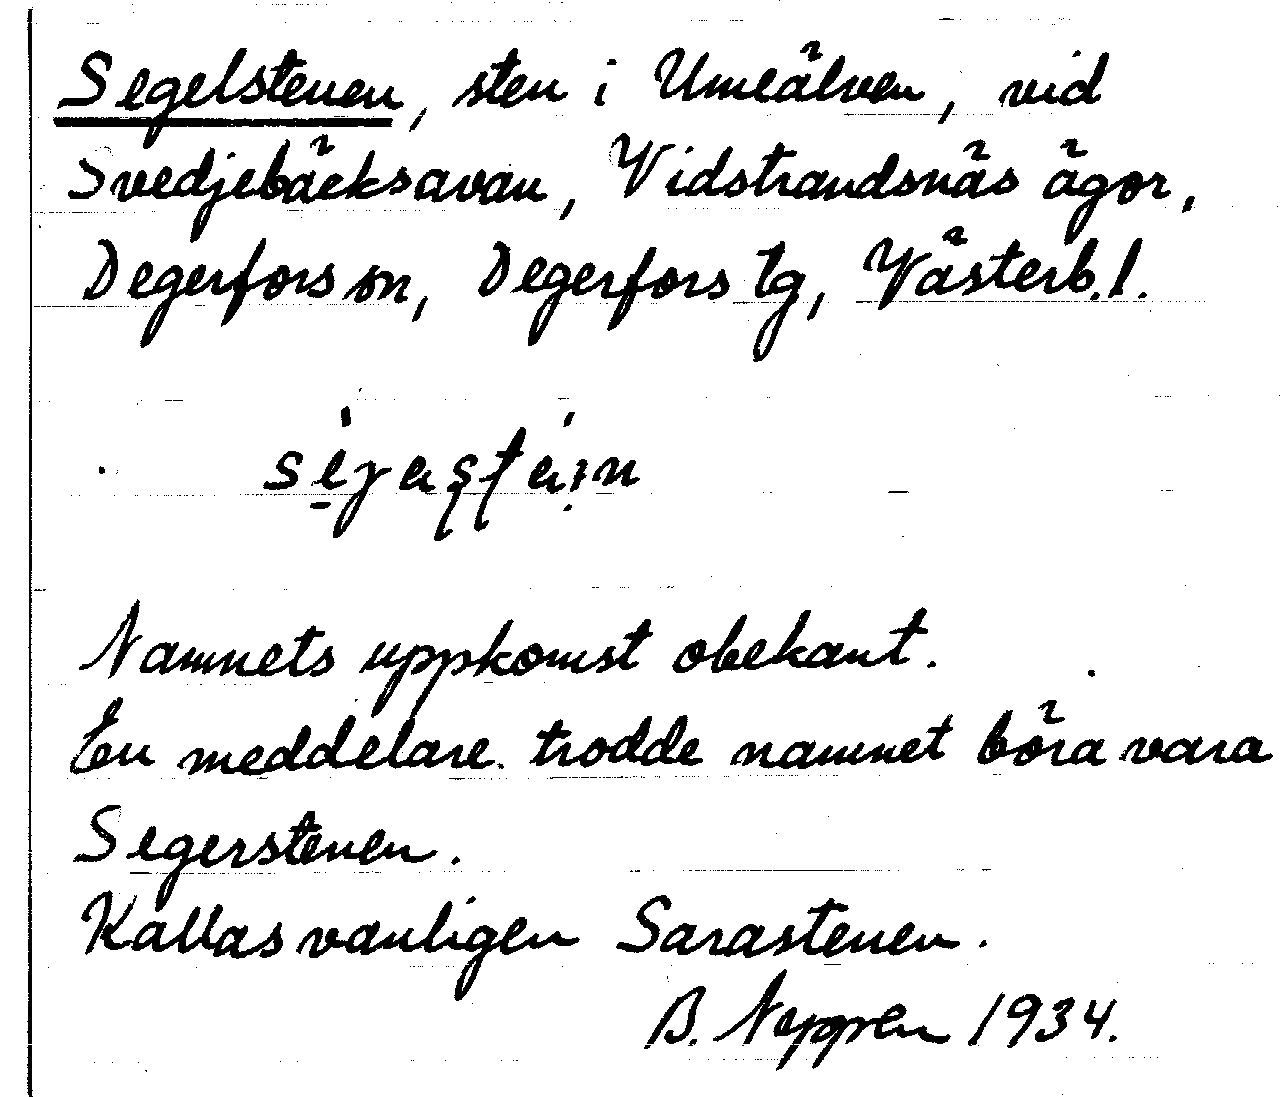 Segelstenen, sten i Umeälven, vid
Svedjebäcksavan, Vidstrandsnäs ägor,
Degerfors sn, Degerfors tg, Västerb. l.
Namnets uppkomst obekant.
En meddelare trodde namnet böra vara
Segerstenen.
Kallas vanligen Sarastenen.
B. Nygren 1934.